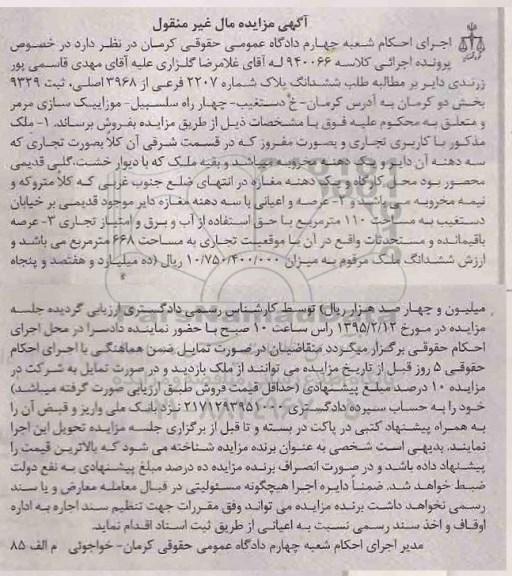 آگهی مزایده مال غیر منقول
اجرای احکام شعبه چهارم دادگاه عمومی حقوقی کرمان در نظر دارد در خصوص
پرونده اجرائی کلاسه ۹۴۰۰۶۶ له آقای غلامرضا گلزاری علیه آقای مهدی قاسمی پور
زرندی دایر بر مطالبه طلب ششدانگ پلاک شماره ۲۲۰۷ فرعی از ۳۹۶۸ اصلی، ثبت ۹۳۲۹
بخش دو کرمان به آدرس کرمان-خ دستغیب-چهار راه سلسبیل-موزاییک سازی مرمر
و متعلق به محکوم علیه فوق با مشخصات ذیل از طریق مزایده بفروش برساند. ۱- ملک
مذکور با کاربری تجاری و بصورت مفروز که در قسمت شرقی آن کلا بصورت تجاری که
سه دهنه آن دایر و یک دهنه مخروبه میباشد و بقیه ملک که با دیوار خشت، گلی قدیمی
محصور بود محل کارگاه و یک دهنه مغازه در انتهای ضلع جنوب غربی که کلاً متروکه و
نیمه مخروبه می باشد و ۲- عرصه و اعیانی با سه دهنه مغازه دایر موجود قدیمی بر خیابان
دستغیب به مساحت ۱۱۰ مترمربع با حق استفاده از آب و برق و امتیاز تجاری ۳- عرصه
باقیمانده و مستحدثات واقع در آن با موقعیت تجاری به مساحت ۶۶۸ مترمربع می باشد و
ارزش ششدانگ ملک مرقوم به میزان ۱۰/۷۵۰/۴۰۰/۰۰۰ ریال (ده میلیارد و هفتصد و پنجاه
میلیون و چهار صد هزار ریال) توسط کارشناس رسمی دادگستری ارزیابی گردیده جلسه
مزایده در مورخ ۱۳۹۵/۲/۱۲ راس ساعت ۱۰ صبح با حضور نماینده دادسرا در محل اجرای
احکام حقوقی برگزار میگردد متقاضیان در صورت تمایل ضمن هماهنگی با اجرای احکام
حقوقی ۵ روز قبل از تاریخ مزایده می توانند از ملک بازدید و در صورت تمایل به شرکت در
مزایده ۱۰ درصد مبلغ پیشنهادی (حداقل قیمت فروش طبق ارزیابی صورت گرفته میباشد)
خود را به حساب سپرده دادگستری نزد بانک ملی واریز و قبض آن را
به همراه پیشنهاد کتبی در پاکت در بسته و تا قبل از برگزاری جلسه مزایده تحویل این اجرا
نمایند. بدیهی است شخصی به عنوان برنده مزایده شناخته می شود که بالاترین قیمت را
پیشنهاد داده باشد و در صورت انصراف برنده مزایده ده درصد مبلغ پیشنهادی به نفع دولت
ضبط خواهد شد. ضمناً دایره اجرا هیچگونه مسئولیتی در قبال معامله معارض و یا سند
رسمی نخواهد داشت برنده مزایده می تواند وفق مقررات جهت تنظیم سند اجاره به اداره
اوقاف و اخذ سند رسمی نسبت به اعیانی از طریق ثبت اسناد اقدام نماید.
مدیر اجرای احکام شعبه چهارم دادگاه عمومی حقوقی کرمان- خواجوئی م الف ۸۵